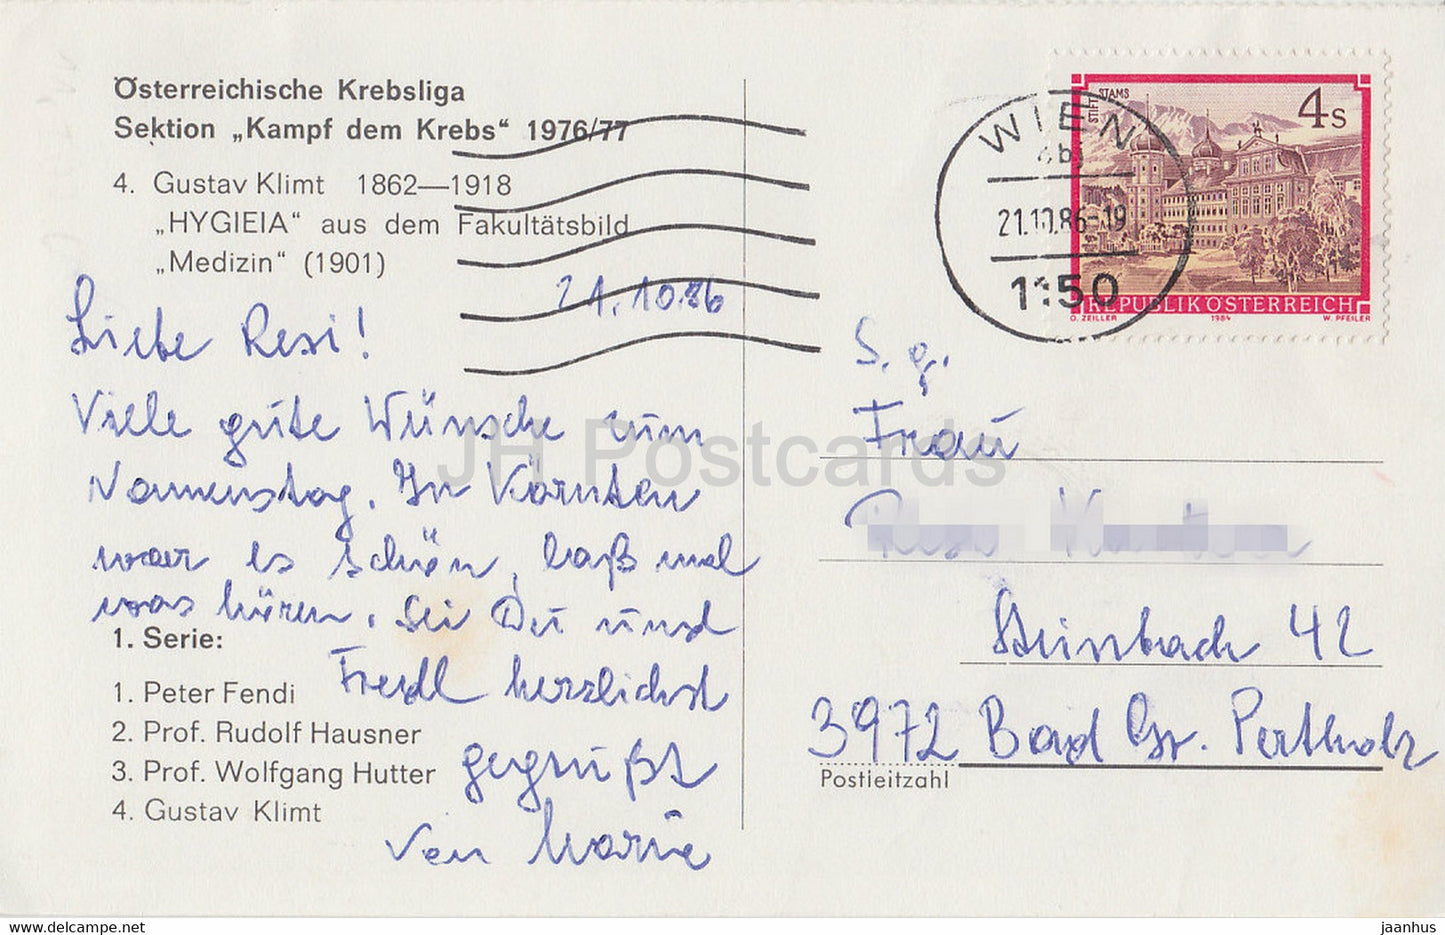 Österreichische Krebsliga
Sektion „Kampf dem Krebs“ 1976/77
4. Gustav Klimt 1862—1918
„HYGIEIA“ aus dem Fakultätsbild
„Medizin“ (1901)
21.10.86
Liebe Resi!
Viele gute Wünsche zum
Namenstag. In Kärnten
war es schön, laß mal
was hören. Sei Du und
Fredl herzlichst
gegrüßt
Von Marie
1. Serie:
1. Peter Fendi
2. Prof. Rudolf Hausner
3. Prof. Wolfgang Hutter
4. Gustav Klimt
WIEN
21.10.86-19
1150
STIFT STAMS
4s
REPUBLIK ÖSTERREICH
O. ZEILLER 1984 W. PFEILER
S. g.
Frau
Steinbach 42
3972 Bad Gr. Pertholz
Postleitzahl
JH Postcards
www.delcampe.net
jaanhus